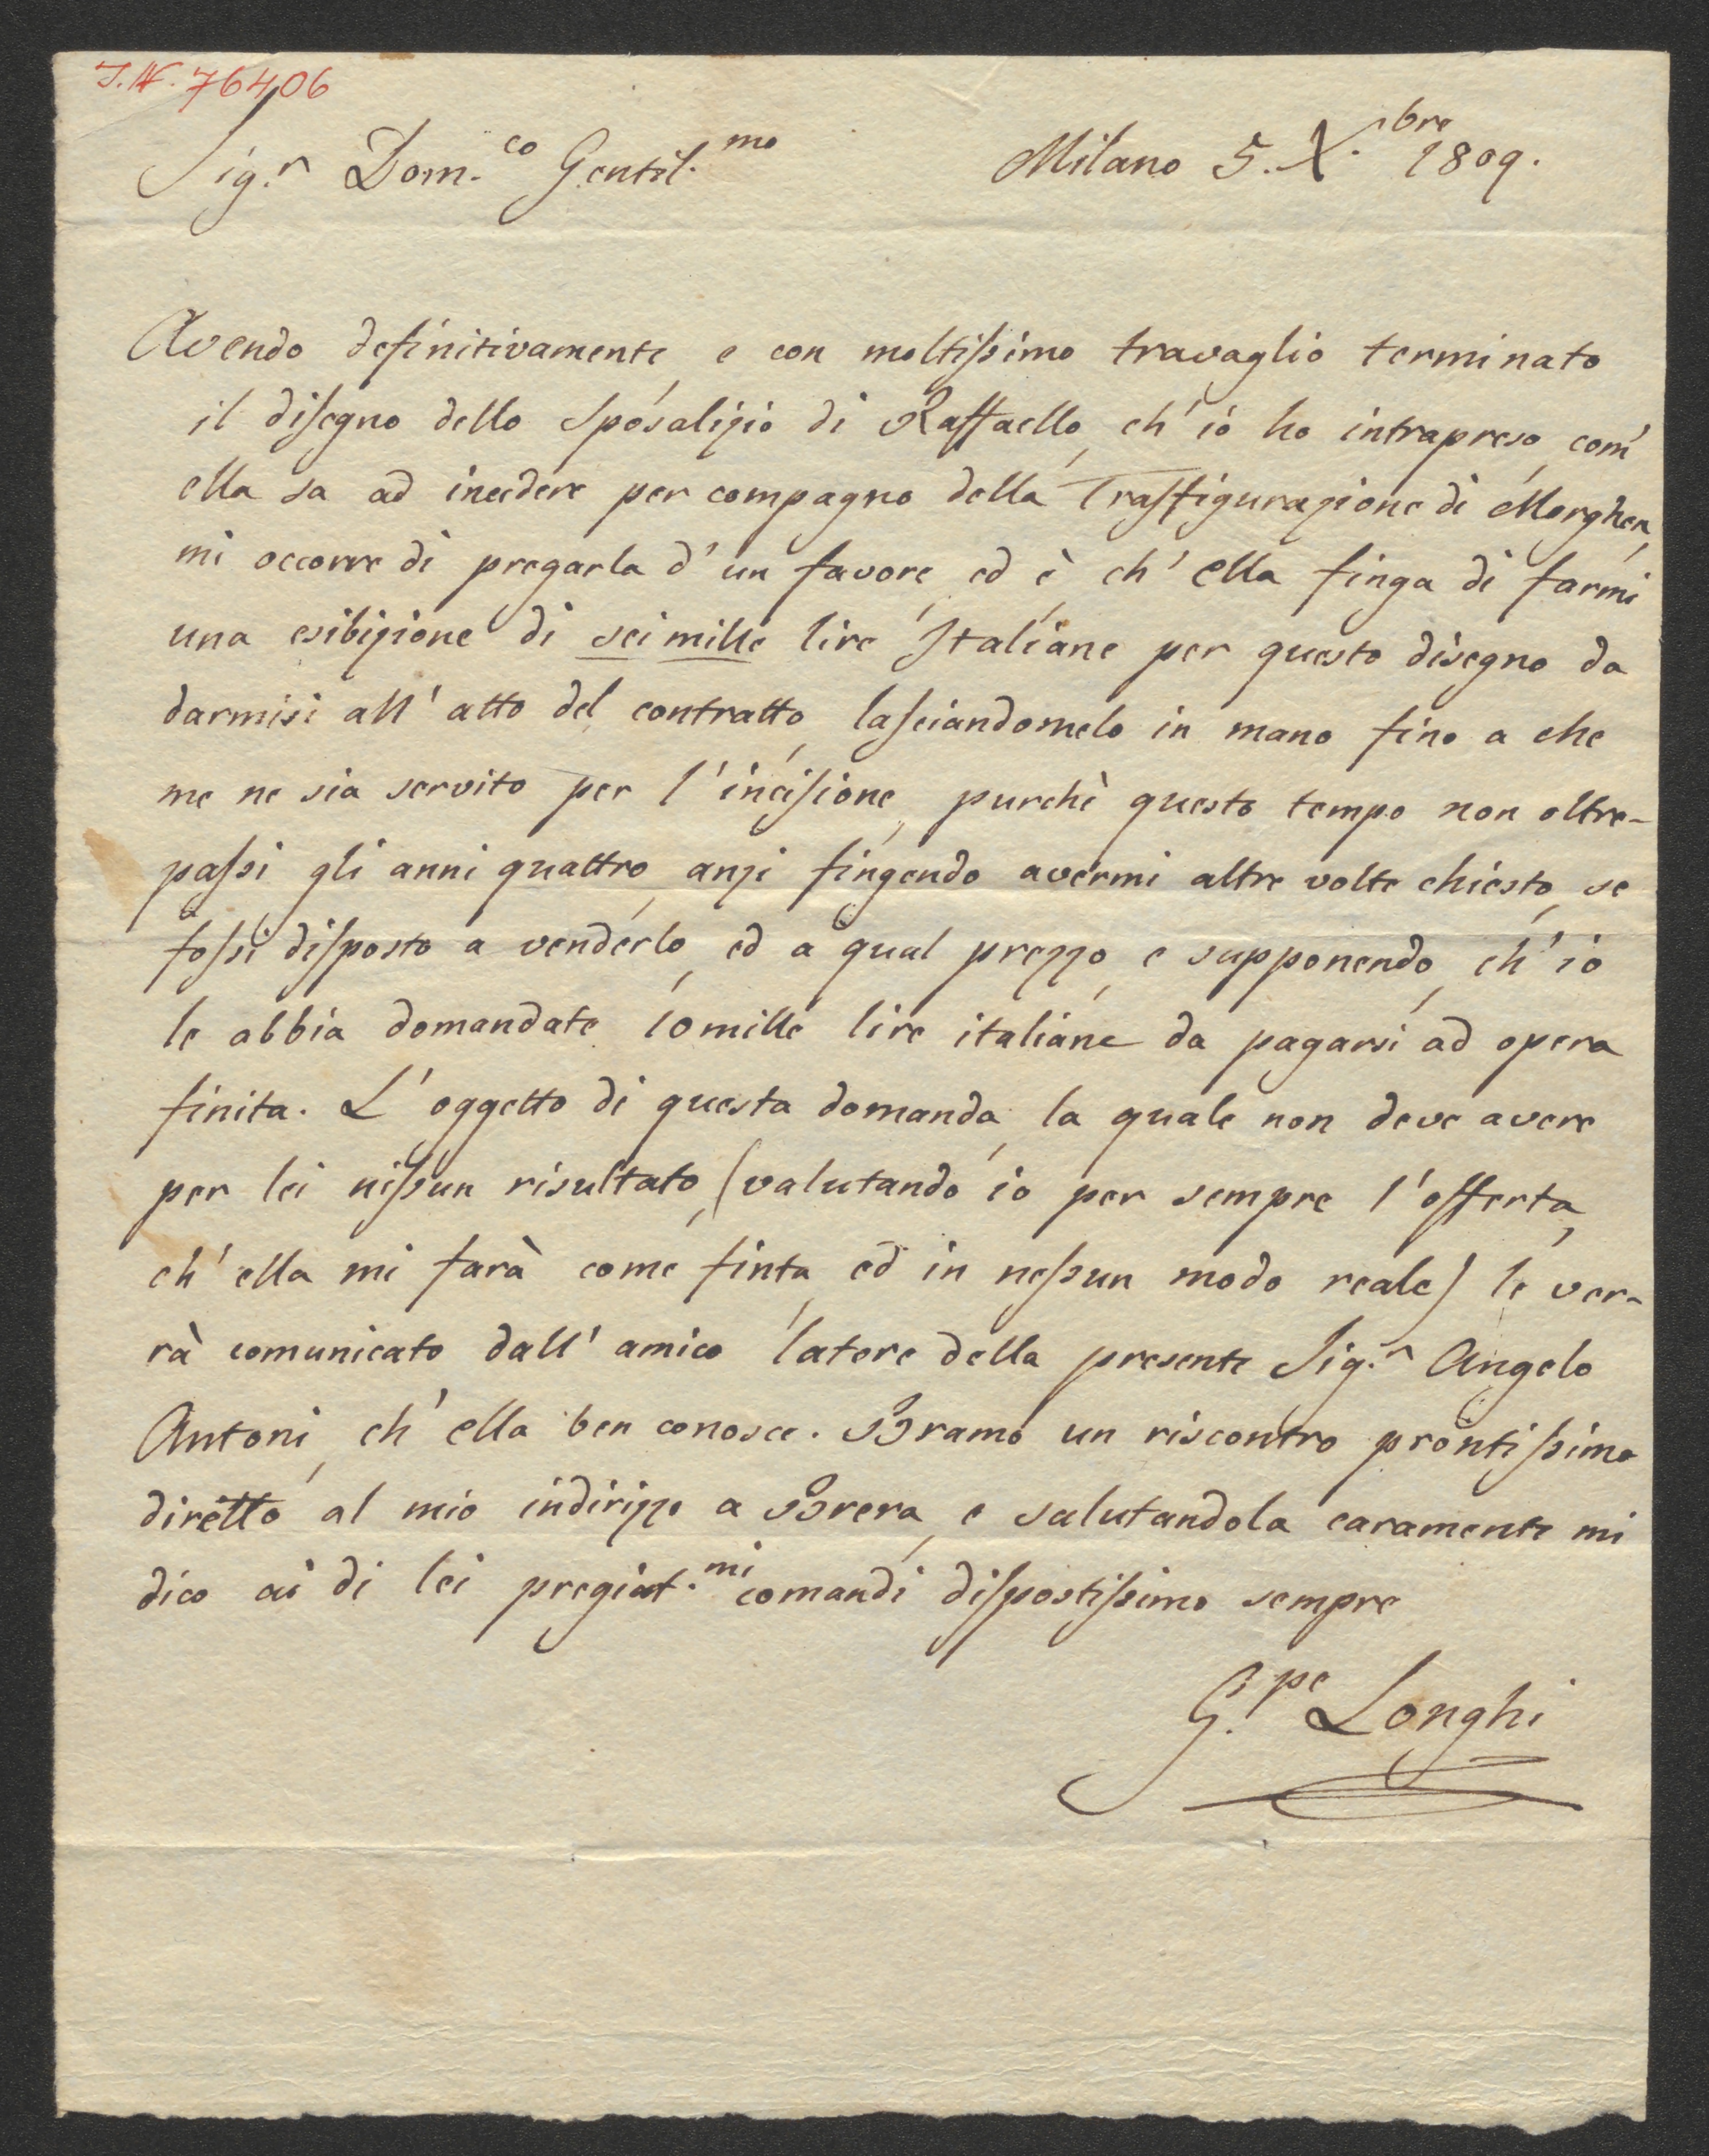 I.N. 76406
Sig.r Dom.co Gentil.mo Milano 5. X.bre 1809.
Avendo definitivamente, e con moltissimo travaglio terminato
il disegno dello Sposalizio di Raffaello, ch'io ho intrapreso, com'
ella sa ad incidere per compagno della Trasfigurazione di Morghen,
mi occorre di pregarla d'un favore, ed è, ch'ella finga di farmi
una esibizione di sei mille lire Italiane per questo disegno da
darmisi all'atto del contratto, lasciandomelo in mano fino a che
me ne sia servito per l'incisione, purchè questo tempo non oltre-
passi gli anni quattro, anzi fingendo avermi altre volte chiesto, se
fossi disposto a venderlo, ed a qual prezzo, e supponendo, ch'io
le abbia domandate 10mille lire italiane da pagarsi ad opera
finita. L'oggetto di questa domanda, la quale non deve avere
per lei nissun risultato, (valutando io per sempre l'offerta,
ch'ella mi farà come finta, ed in nessun modo reale) le ver-
rà comunicato dall'amico latore della presente Sig.r Angelo
Antoni, ch'ella ben conosce. Bramo un riscontro prontissimo
diretto al mio indirizzo a Brera, e salutandola caramente mi
dico ai di lei pregiat.mi comandi dispostissimo sempre
G.pe Longhi